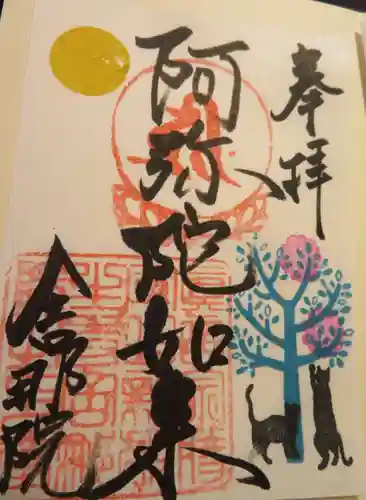 奉拝
阿弥陀如来
舎那院